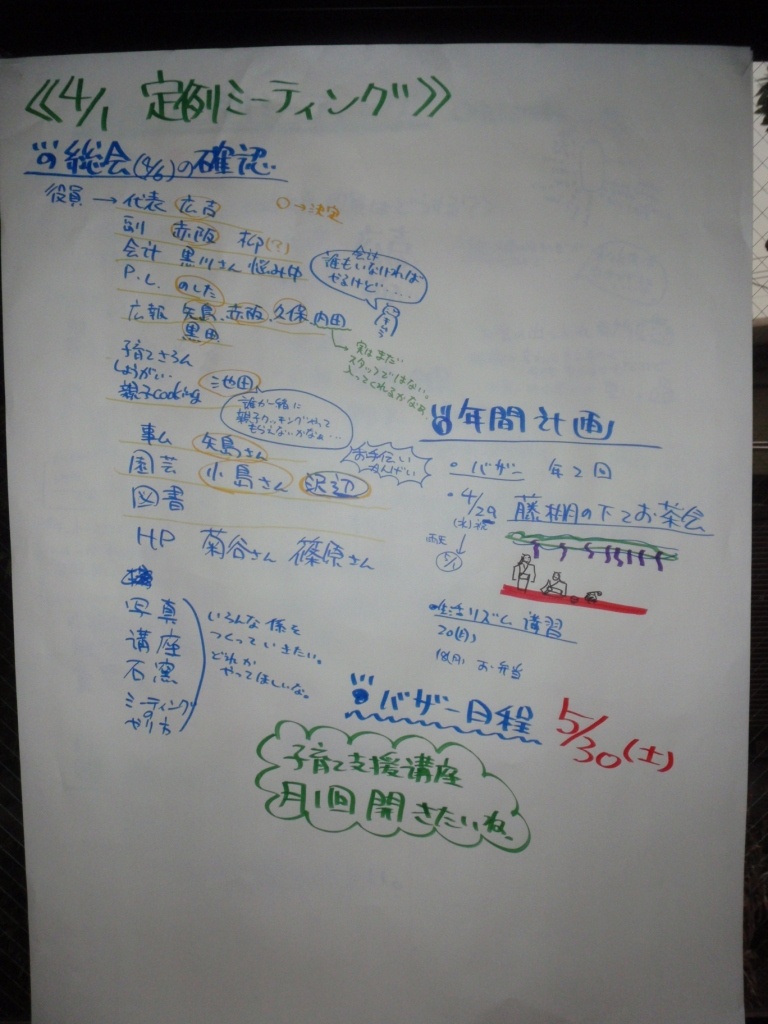 《4/1 定例ミーティング》
総会(4/6)の確認
役員→代表 広吉 ○→決定
副 赤阪 柳(?)
会計 黒川さん 悩み中
会計
誰もいなければ
やるけど・・・・
P.L. のした
広報 矢島、赤阪、久保、内田
黒田
実はまだ
スタッフではない。
入ってくれるかなぁ
子育てさろん
しょうがい
親子cooking 池田
誰か一緒に
親子クッキングやって
もらえないかなぁ…
事ム 矢島さん
お手伝い
園芸 小島さん 沢辺
図書
HP 菊谷さん 篠原さん
写真
講座
石窯
ミーティング
の
やり方
いろんな係を
つくっていきたい。
どれか
やってほしいな。
年間計画
・バザー 年2回
・4/29 藤棚の下でお茶会
(水)祝
雨天
5/1
生活リズム講習
20(月)
18(月) お弁当
バザー日程 5/30(土)
子育て支援講座
月1回開きたいね。